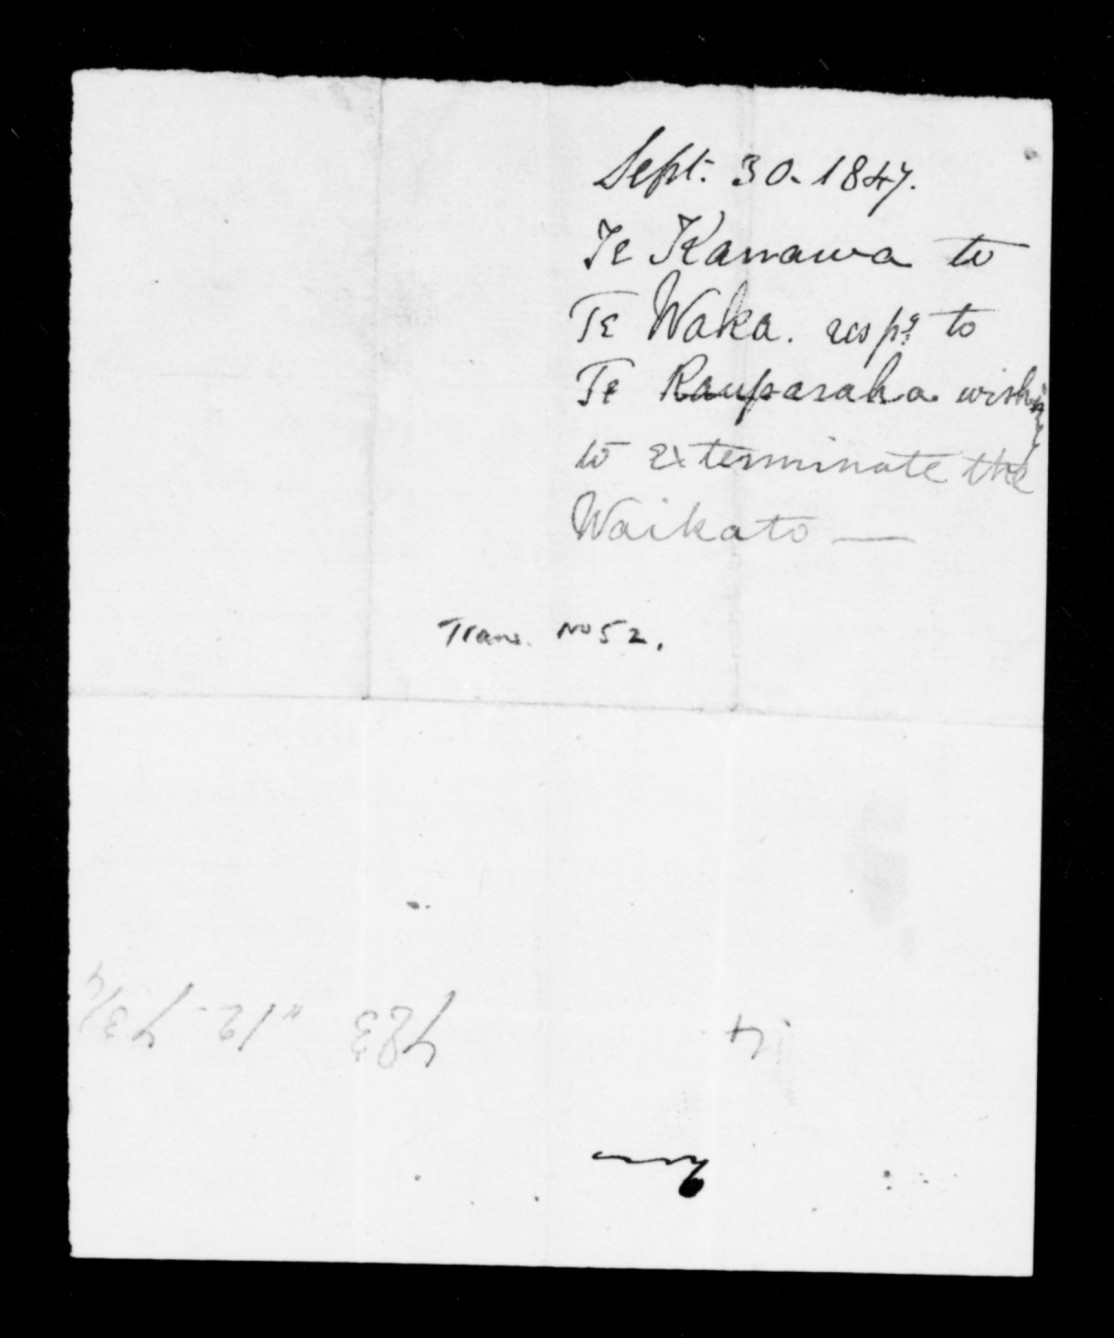 Sept. 30. 1847.
Te Kanawa to
Te Waka. resp.g to
Te Rauparaha wishing
to exterminate the
Waikato —
Trans. No 52.
4
783 " 12 - 7 3/4